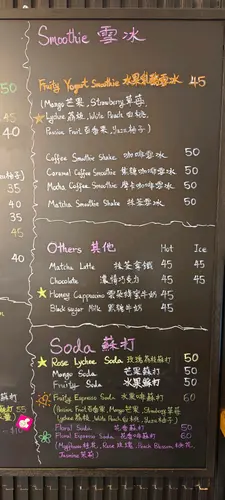 Smoothie 雪冰
50
Fruity Yogurt Smoothie 水果乳酪雪冰 45
(Mango 芒果, Strawberry 草莓,
45
Lychee 荔枝, White Peach 白桃,
40
Passion Fruit 百香果, Yuzu 柚子)
Coffee Smoothie Shake 咖啡雪冰 50
Caramel Coffee Smoothie 焦糖咖啡雪冰 50
35
Mocha Coffee Smoothie 摩卡咖啡雪冰 50
40
Matcha Smoothie Shake 抹茶雪冰 50
35
45
Others 其他 Hot Ice
40
Matcha Latte 抹茶拿鐵 45 45
Chocolate 濃情巧克力 45 45
Honey Cappuccino 雲朵蜂蜜牛奶 45
Black sugar Milk 黑糖牛奶 45
Soda 蘇打
Rose Lychee Soda 玫瑰荔枝蘇打 50
Mango Soda 芒果蘇打 50
Fruity Soda 水果蘇打 50
Fruity Espresso Soda 水果咖蘇打 60
Passion Fruit 百香果, Mango 芒果, Strawberry 草莓
55
Lychee 荔枝, White Peach 白桃, Yuzu 柚子
Floral Soda 花香蘇打 50
Floral Espresso Soda 花香咖蘇打 60
桂花, Rose 玫瑰, Peach Blossom 桃花,
Jasmine 茉莉)